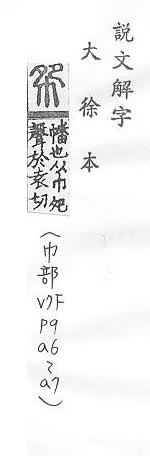 說文解字
大徐本
幡也从巾夗
聲於袁切
(巾部
V7F
P9
a6
~
a7)